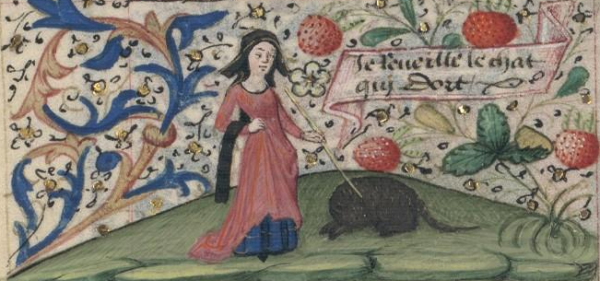 Je Reueille le chat
qui Dort